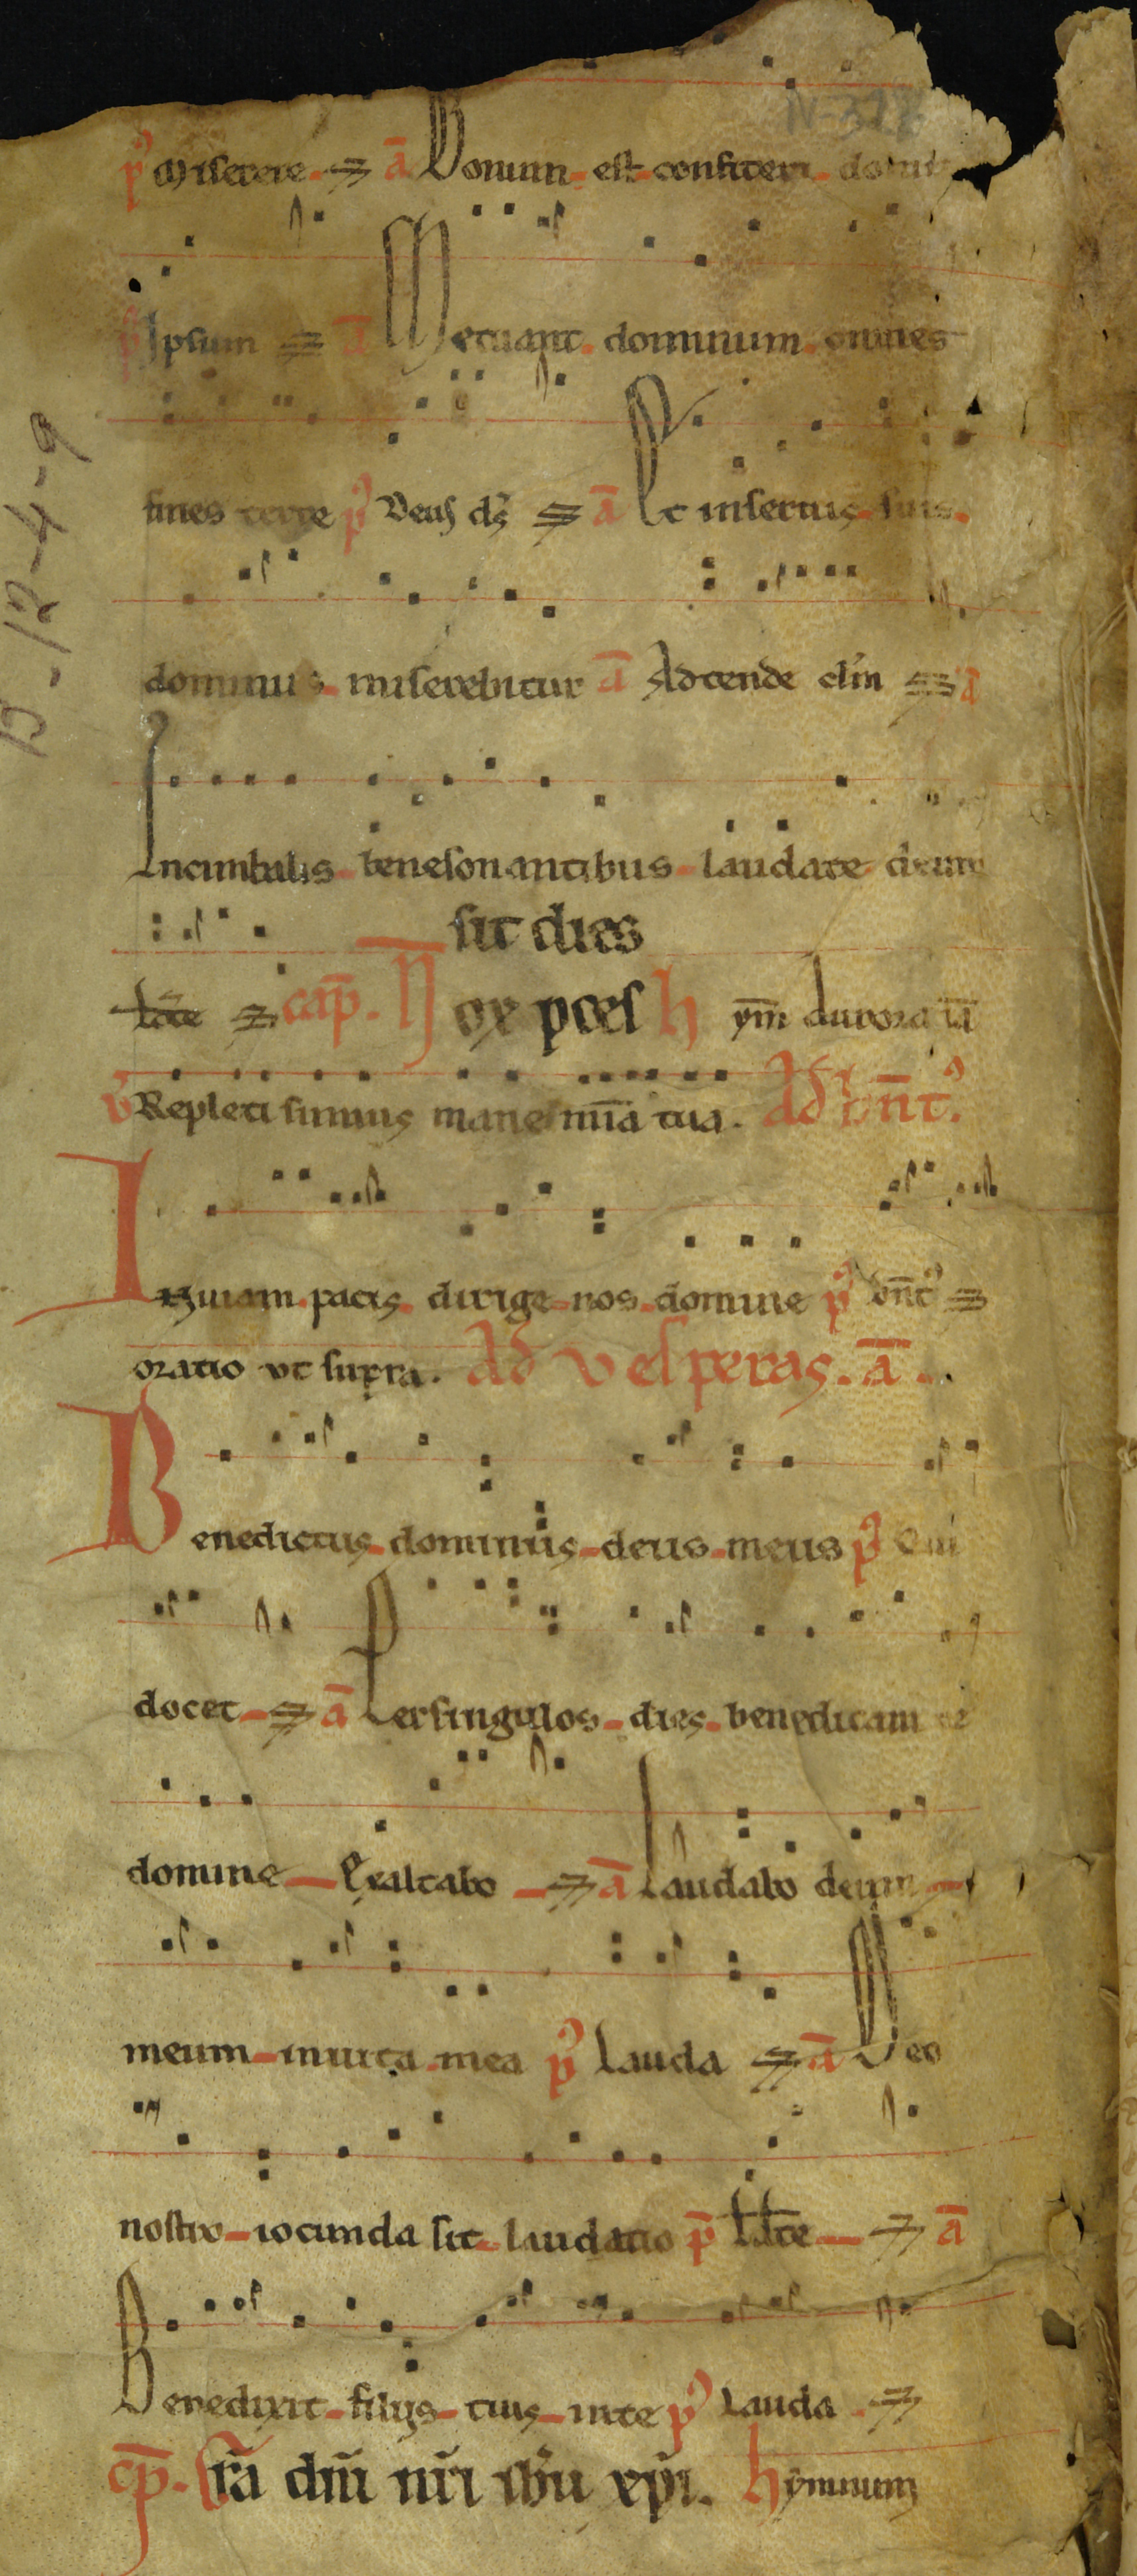 N-328
pͥ Miserere. ā Bonum est confiteri domi
pͥ Ipsum ā Metuant dominum omnes
fines terre pͥ Deus ds ā Et in servis suis
dominus miserebitur ā Adtende clm ā
In cimbalis benesonantibus laudate deum
sit dies
late cap̄. Nox p̄ces hym̄ aurora iā
v̄ Repleti sumus mane mīa tua. Ad bn̄t᾿.
In viam pacis dirige nos domine pͥ bn̄t᾿
oratio ut supra. Ad vesperas. ā.
Benedictus dominus deus meus pͥ Qui
docet ā Per singulos dies benedicam te
domine Exaltabo ā Laudabo deum
meum in vita mea pͥ Lauda ā Deo
nostro iocunda sit laudatio p̄ Ldte ā
Benedixit filijs tuis in te pͥ Lauda
cp̄. Grā dnī nrī ihū xpī. hymnum
D-12-4-9